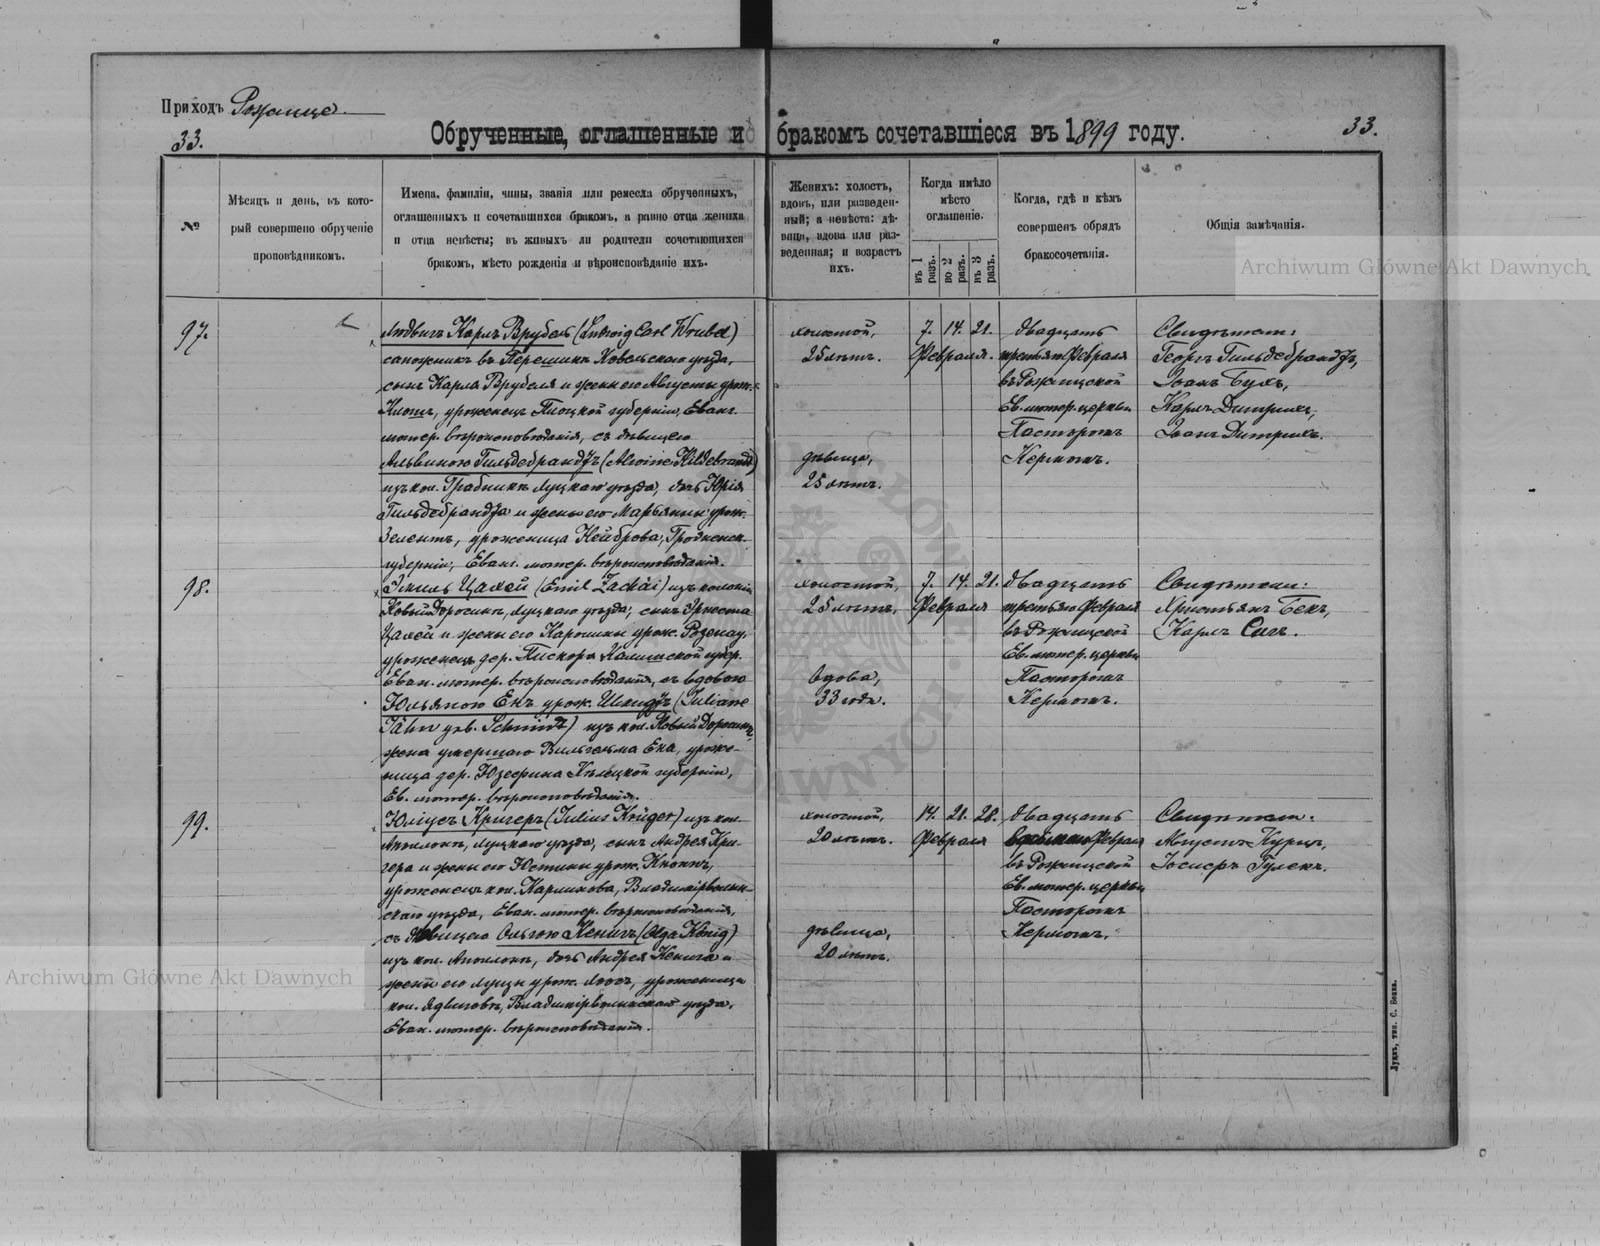 Приходъ Рожище
33.
Обрученные, оглашенные и бракомъ сочетавшіеся въ 1899 году.
33.
№
Мѣсяцъ и день, въ кото-
рый совершено обрученіе
проповѣдникомъ.
Имена, фамиліи, чины, званія или ремесла обрученныхъ,
оглашенныхъ и сочетавшихся бракомъ, а равно отца жениха
и отца невѣсты; въ живыхъ ли родители сочетающихся
бракомъ, мѣсто рожденія и вѣроисповѣданіе ихъ.
Женихъ: холостъ,
вдовъ, или разведен-
ный; а невѣста: дѣ-
вица, вдова или раз-
веденная; и возрастъ
ихъ.
Когда имѣло
мѣсто
оглашеніе.
въ 1 разъ.
во 2 разъ.
въ 3 разъ.
Когда, гдѣ и кѣмъ
совершенъ обрядъ
бракосочетанія.
Общія замѣчанія.
Archiwum Główne Akt Dawnych
97.
Людвигъ Карлъ Врубель (Ludwig Carl Wrubel)
сапожникъ въ Перешикъ Ковельскаго уѣзда,
сынъ Карла Врубеля и жены его Августы урож.
Клотъ, уроженецъ Плоцкой губерніи, Еванг.
лютер. вѣроисповѣданія, съ дѣвицею
Альвиною Гильдебрандтъ (Alwine Hildebrandt)
изъ кол. Грабникъ Луцкаго уѣзда, дочь Юрія
Гильдебрандта и жены его Марьянны урож.
Зелентъ, уроженица Кейброва, Гродненск.
губерніи, Еванг. лютер. вѣроисповѣданія.
холостой,
25 лѣтъ.
дѣвица,
25 лѣтъ.
7. 14. 21.
Февраля.
двадцать
третьяго Февраля
въ Рожищской
Ев. лютер. церкви
Пасторомъ
Кермомъ.
Свидѣтели:
Георгъ Гильдебрандтъ,
Іоанъ Бухъ,
Карлъ Дитрихъ,
Іоанъ Дитрихъ.
98.
Эмиль Цахей (Emil Zachäi) изъ колоніи
Новый Доросинъ, Луцкаго уѣзда, сынъ Эрнеста
Цахей и жены его Каролины урож. Розенау,
уроженецъ дер. Пискора Калишской губер.
Еван. лютер. вѣроисповѣданія, съ вдовою
Юльяною Енъ урож. Шмидтъ (Juliane
Jähn geb. Schmidt) изъ кол. Новый Доросинъ,
жена умершаго Вильгельма Ена, уроже-
ница дер. Юзефина Кѣлецкой губерніи,
Ев. лютер. вѣроисповѣданія.
холостой,
25 лѣтъ.
вдова,
33 года.
7. 14. 21.
Февраля
двадцать
третьяго Февраля
въ Рожищской
Ев. лютер. церкви
Пасторомъ
Кермомъ.
Свидѣтели:
Христьянъ Бекъ,
Карлъ Сигъ.
99.
Юліусъ Кригеръ (Julius Krüger) изъ кол.
Аполонъ, Луцкаго уѣзда, сынъ Андрея Кри-
гера и жены его Юстины урож. Кноппъ,
уроженецъ кол. Карлинова, Владимірволын-
скаго уѣзда, Еван. лютер. вѣроисповѣданія,
съ дѣвицею Ольгою Кенигъ (Olga König)
изъ кол. Аполонъ, дочь Андрея Кенига и
жены его Луизы урож. Лоосъ, уроженица
кол. Ядвиговъ, Владимірволынскаго уѣзда,
Еван. лютер. вѣроисповѣданія.
холостой,
20 лѣтъ.
дѣвица,
20 лѣтъ.
14. 21. 28.
Февраля
двадцать
восьмаго Февраля
въ Рожищской
Ев. лютер. церкви
Пасторомъ
Кермомъ.
Свидѣтели:
Августъ Курцъ,
Іосифъ Гулекъ.
Archiwum Główne Akt Dawnych
Луцкъ, тип. С. Бонка.